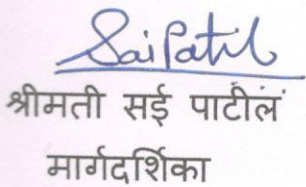 Sai Patil
श्रीमती सई पाटील
मार्गदर्शिका